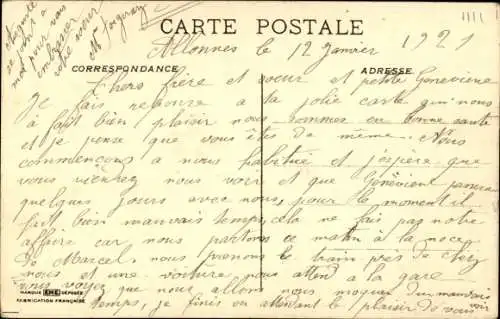 CARTE POSTALE
Allonnes le 12 Janvier 1921
CORRESPONDANCE
ADRESSE
Chers frère et sœur et petite Geneviève
Je fais reponse a ta jolie carte qui nous
à fait bien plaisir nous sommes en bonne santé
et je pense que vous êtes de même. Nous
commencons a nous habitué et j'espère que
vous viendrez nous voir et que Genevieve
quelques jours avec nous, pour le moment il
fait bien mauvais temps, cela ne fais pas notre
affaire car nous partons ce matin à la noce
de Marcel. nous prenons le train près de chez
nous et une voiture nous attend a la gare
vous voyez que nous allons nous moquer du mauvais
temps, je finis en attendant le plaisir de vous
voir
MARQUE DÉPOSÉE
FABRICATION FRANÇAISE
se joint a
moi pour vous
embrasser
votre sœur